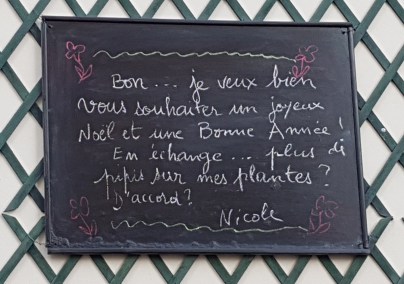 Bon... je veux bien
vous souhaiter un joyeux
Noël et une Bonne Année !
En échange... plus de
pipis sur mes plantes ?
D'accord ?
Nicole